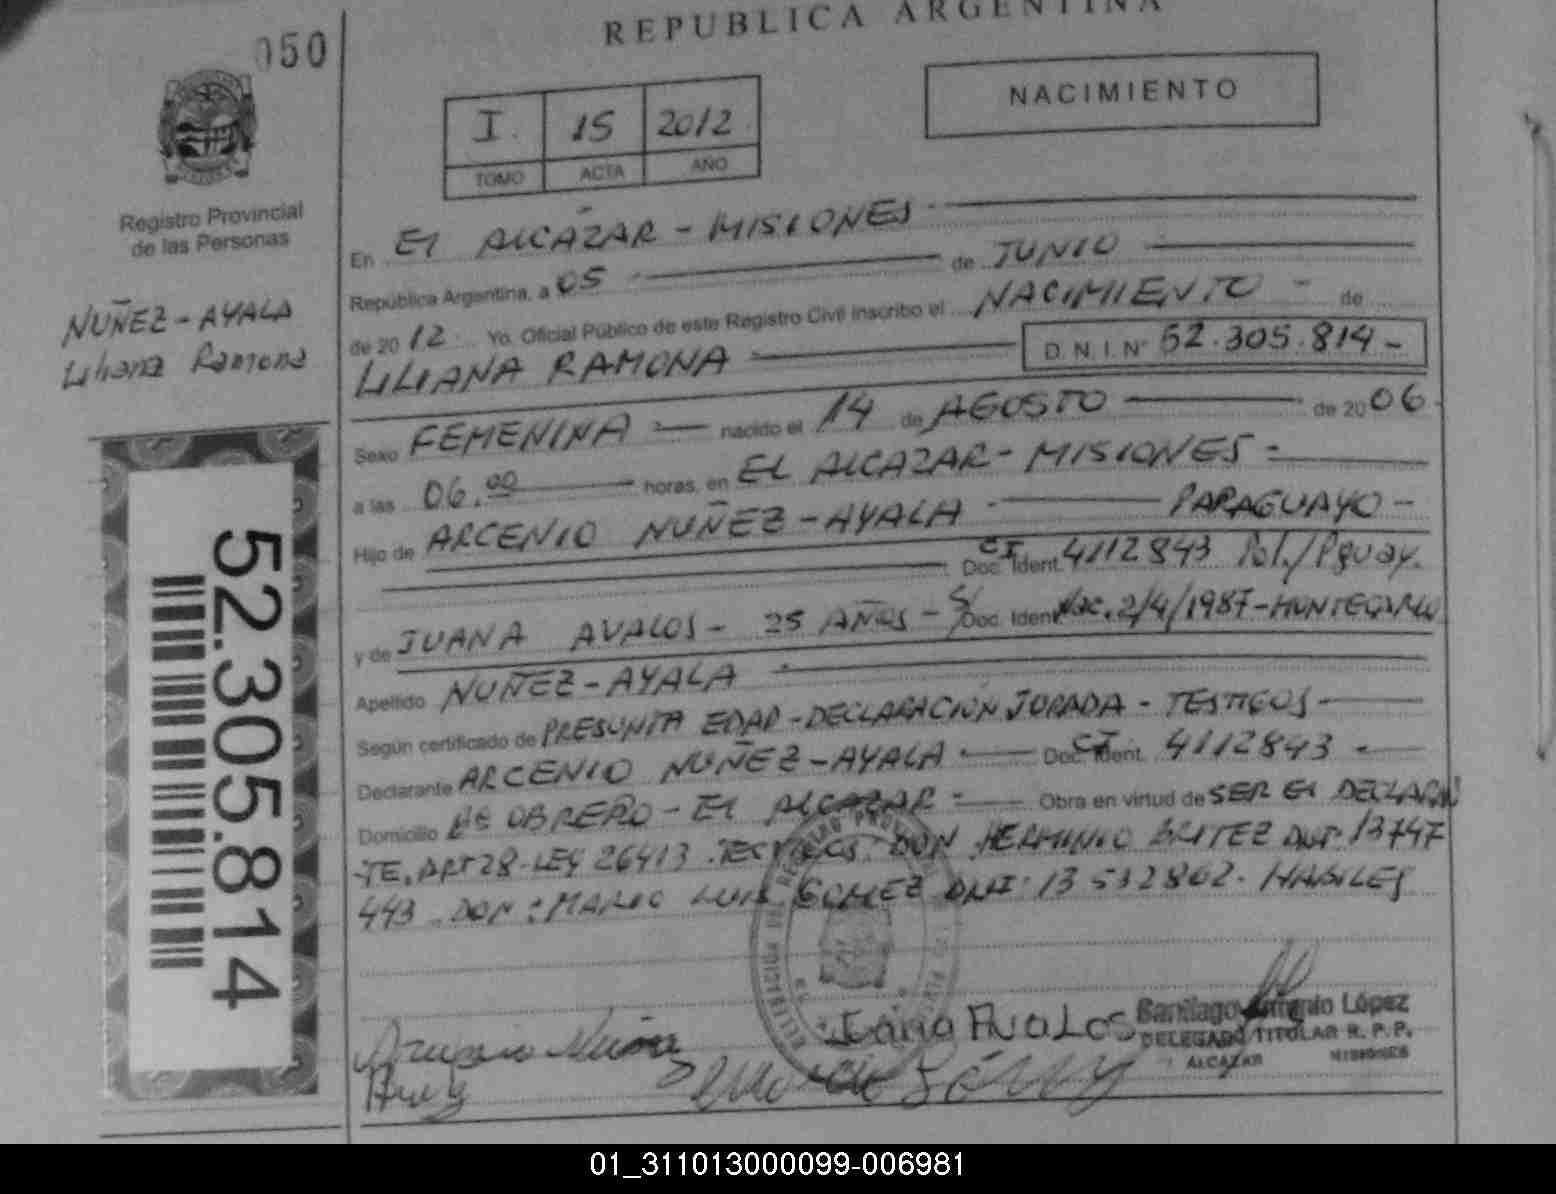 REPUBLICA ARGENTINA
050
NACIMIENTO
I. 15 2012
TOMO ACTA AÑO
Registro Provincial
de las Personas
NUÑEZ-AYALA
Liliana Ramona
52.305.814
En El ALCÁZAR - MISIONES
República Argentina, a 05 de JUNIO
de 2012. Yo, Oficial Público de este Registro Civil inscribo el NACIMIENTO - de
LILIANA RAMONA D.N.I. Nº 52.305.814-
Sexo FEMENINA nacido el 14 de AGOSTO de 2006
a las 06.00 horas, en EL ALCAZAR - MISIONES -
Hijo de ARCENIO NUÑEZ-AYALA - PARAGUAYO -
Doc. Ident. CI 4112843 Pol./Pguay.
y de JUANA AVALOS - 25 AÑOS - S/ Doc. Ident. Nac. 2/4/1987-MONTECARLO
Apellido NUÑEZ-AYALA
Según certificado de PRESUNTA EDAD - DECLARACIÓN JURADA - TESTIGOS
Declarante ARCENIO NUÑEZ-AYALA Doc. Ident. CI 4112843
Domicilio Bº OBRERO - El ALCAZAR - Obra en virtud de SER El DECLARAN
-TE. ART 28-LEY 26413. TESTIGOS: DON HERMINIO BRITEZ DNI: 13747
443. DON: MARIO LUIS GOMEZ DNI: 13 532862. HABILES
Juana AvaLos
Santiago Antonio López
DELEGADO TITULAR R. P. P.
ALCAZAR MISIONES
01_311013000099-006981